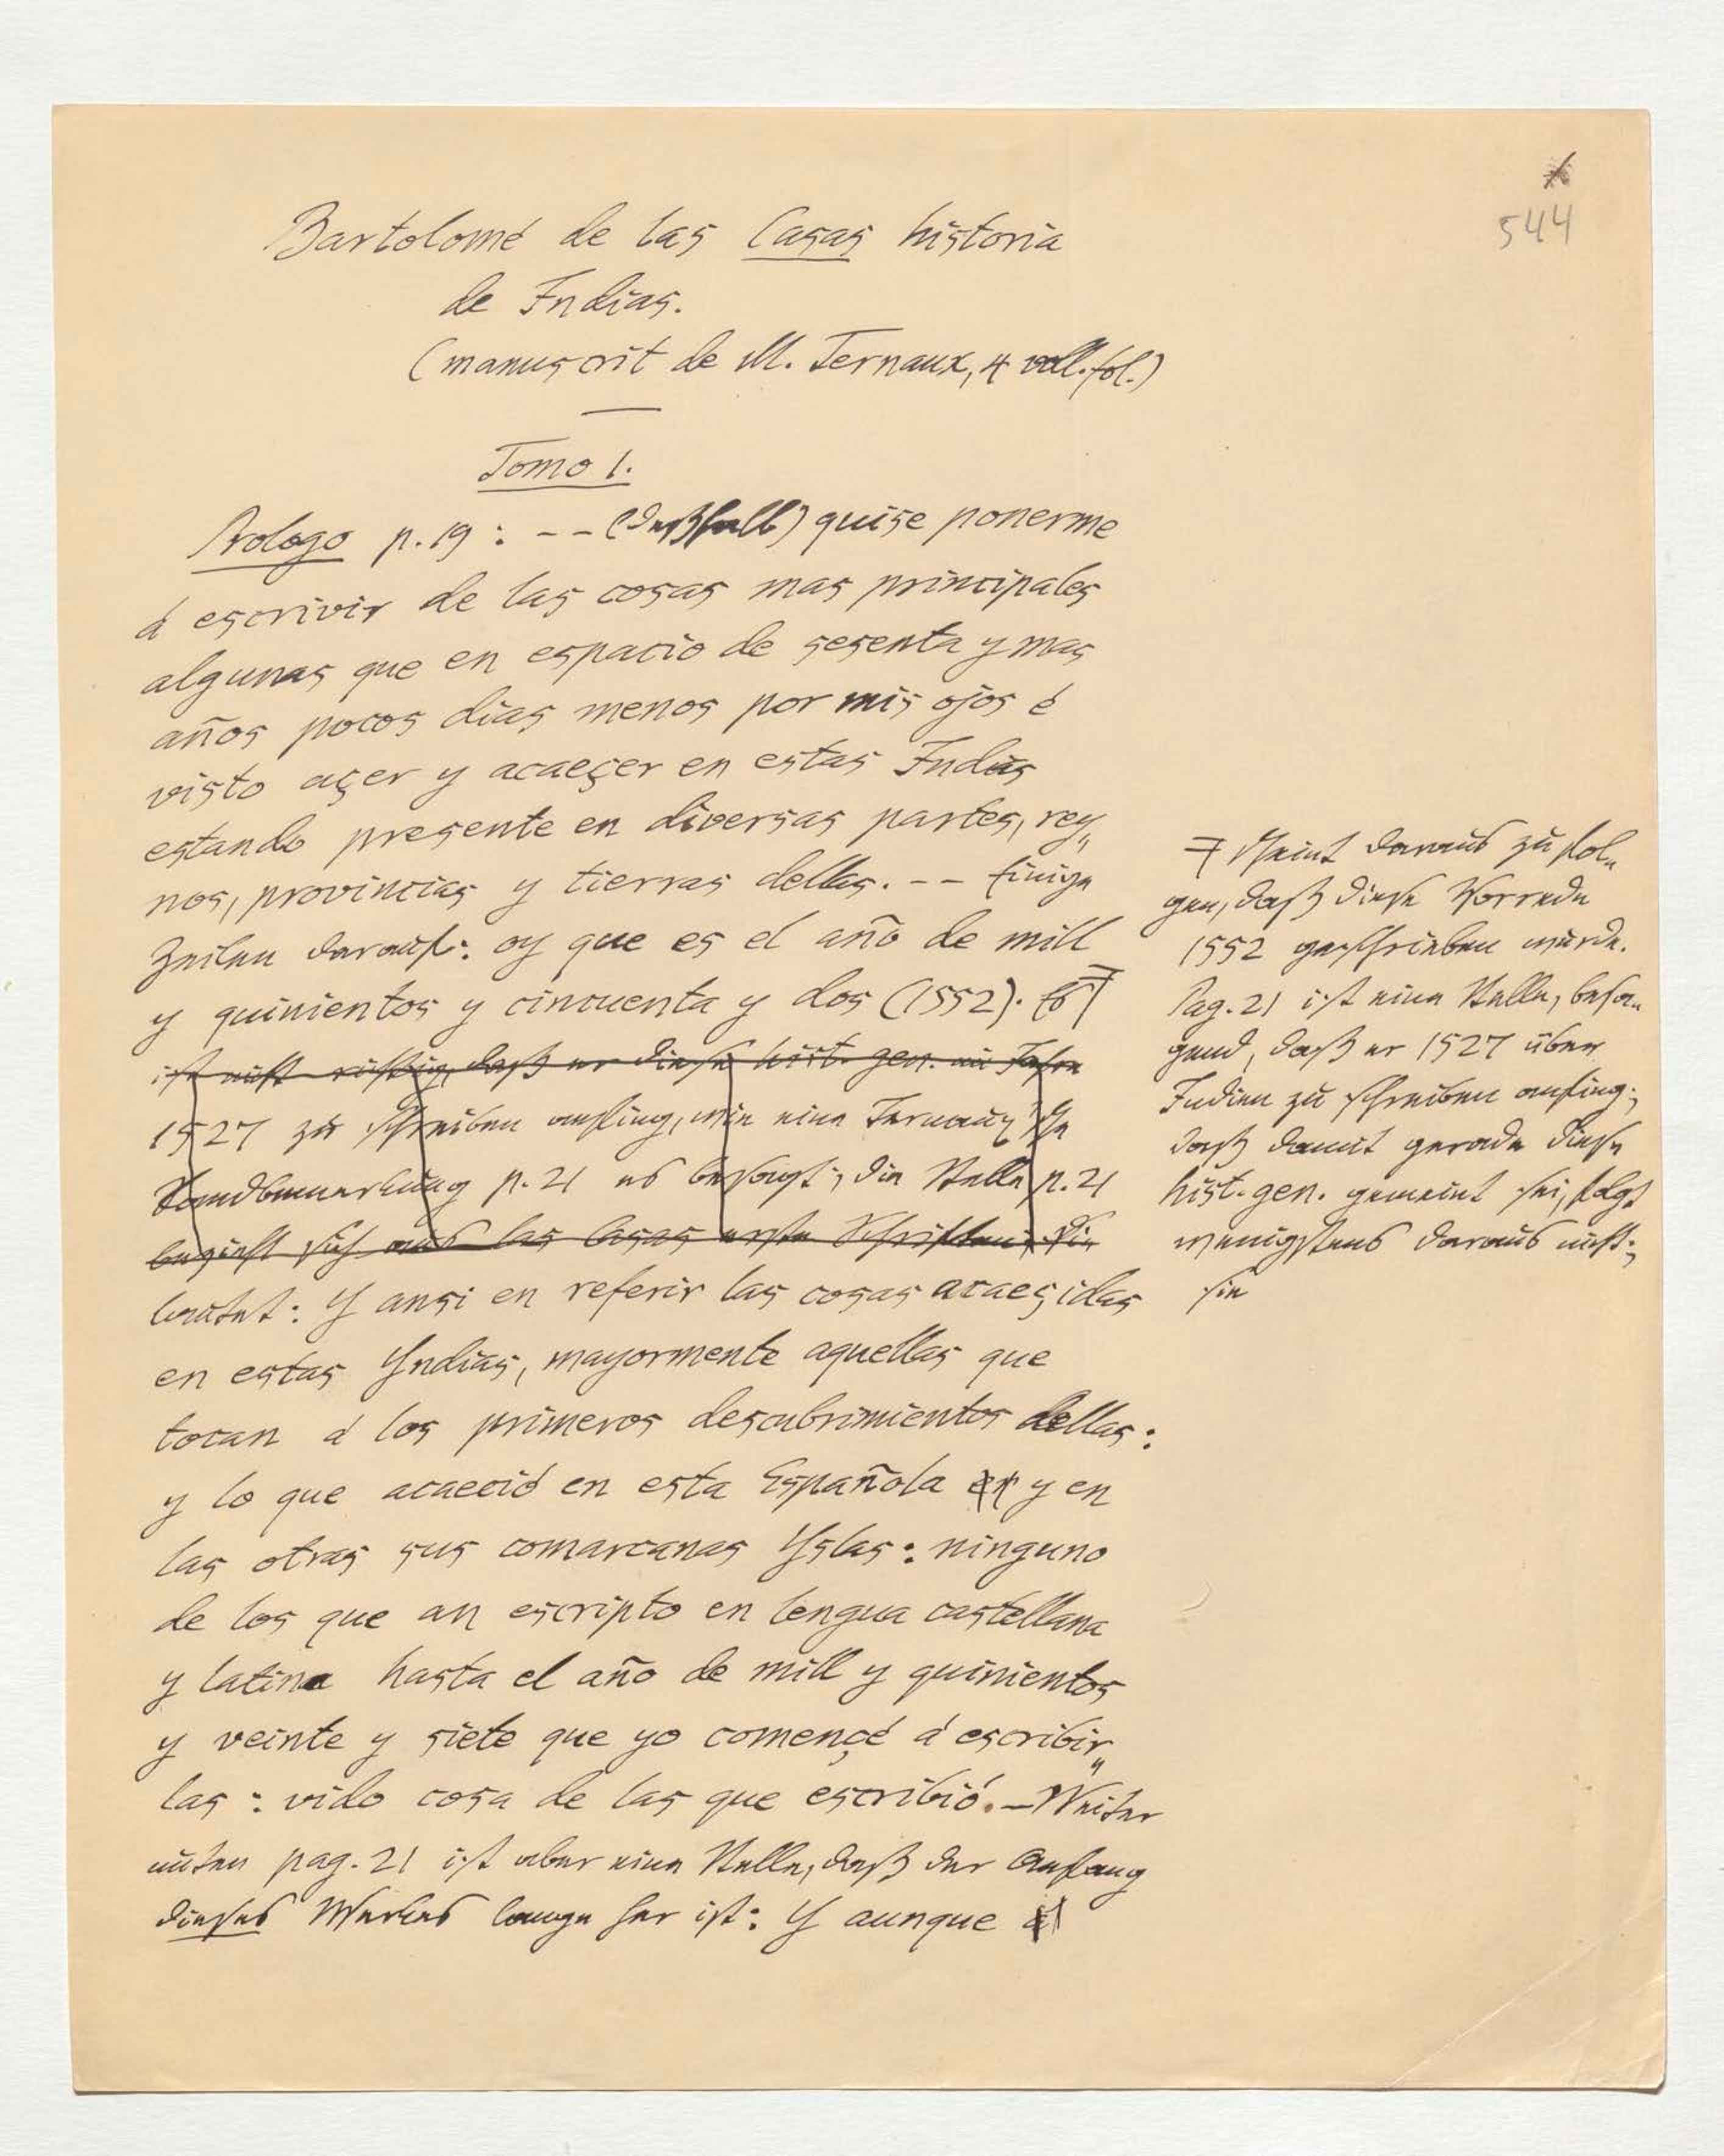 544
Bartolomé de las Casas historia
de Indias.
(manuscrit de M. Ternaux, 4 voll. fol.)
Tomo 1.
Prologo p. 19: -- (deßhalb) quise ponerme
á escrivir de las cosas mas principales
algunas que en espacio de sesenta y mas
años pocos dias menos por mis ojos é
visto açer y acaeçer en estas Indias
estando presente en diversas partes, rey„
nos, provincias y tierras dellas. -- Einige
Zeilen darauf: oy que es el año de mill
y quinientos y cincuenta y dos (1552). Es
ist nicht richtig, daß er diese hist. gen. im Jahre
1527 zu schreiben anfing, wie eine Ternaux'sche
Randbemerkung p. 21 es besagt; die Stelle p. 21
bezieht sich auf las Casas erste Schriften; Sie
lautet: Y ansi en referir las cosas acaeçidas
en estas Yndias, mayormente aquellas que
tocan á los primeros descubrimientos dellas:
y lo que acaeció en esta Española y en
las otras sus comarcanas Yslas: ninguno
de los que an escripto en lengua castellana
y latina hasta el año de mill y quinientos
y veinte y siete que yo començé á escribir„
las: vido cosa de las que escribió. - Weiter
unten pag. 21 ist aber eine Stelle, daß der Anfang
dieses Werkes lange her ist: Y aunque
scheint daraus zu fol„
gen, daß diese Vorrede
1552 geschrieben wurde.
Pag. 21 ist eine Stelle, besa„
gend, daß er 1527 über
Indien zu schreiben anfing;
daß damit gerade diese
hist. gen. gemeint sei, folgt
wenigstens daraus nicht;
sie